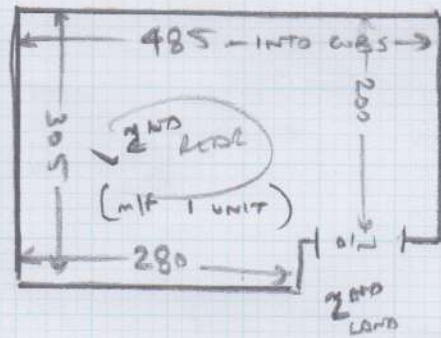 485 - INTO CUBS
305
200
2ND REAR
(M/F 1 UNIT)
280
D/L
2ND
LAND